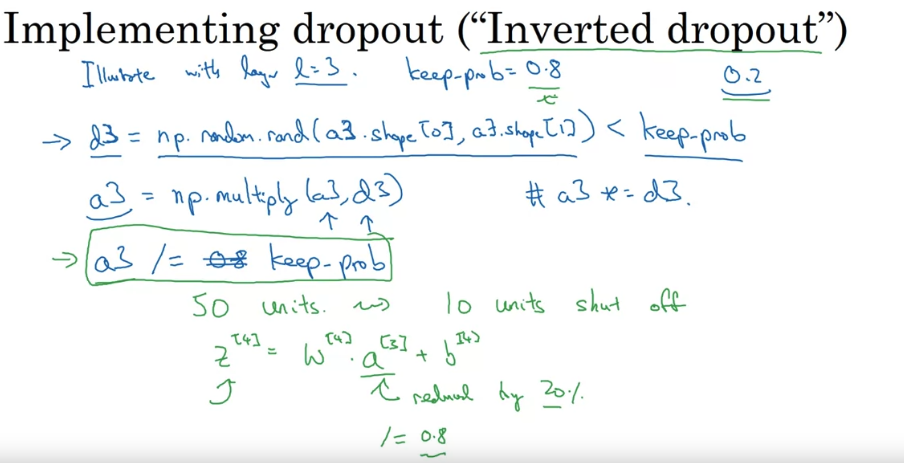 Implementing dropout ("Inverted dropout")
Illustrate with layer l=3. keep-prob = 0.8 0.2
→ d3 = np.random.rand(a3.shape[0], a3.shape[1]) < keep-prob
a3 = np.multiply(a3, d3) # a3 *= d3.
→ a3 /= 0.8 keep-prob
50 units. ⇝ 10 units shut off
z^[4] = W^[4] · a^[3] + b^[4]
reduced by 20%.
/= 0.8